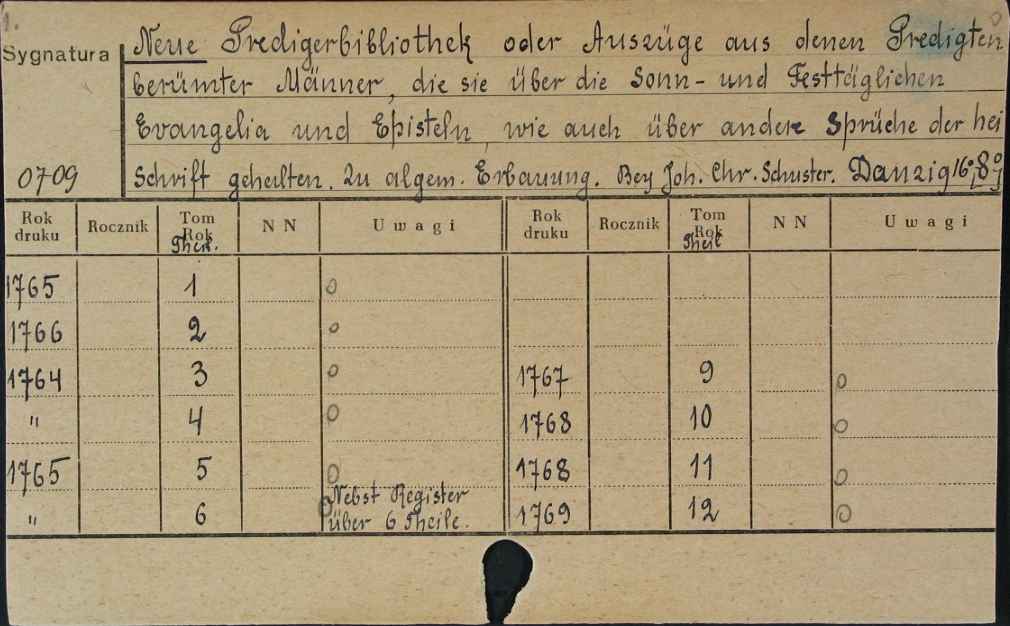 1.
Sygnatura
Neue Predigerbibliothek oder Auszüge aus denen Predigten
berümter Männer, die sie über die Sonn- und Festtäglichen
Evangelia und Episteln, wie auch über andere Sprüche der hei
0709
Schrift gehalten. Zu algem. Erbauung. Bey Joh. Chr. Schuster. Danzig 16° 8°
Rok druku Rocznik Tom Rok NN Uwagi Rok druku Rocznik Tom Rok NN Uwagi
Theil. Theil
1765 1 0
1766 2 0
1764 3 0 1767 9 0
" 4 0 1768 10 0
1765 5 0 1768 11 0
" 6 0 Nebst Register 1769 12 0
über 6 Theile.